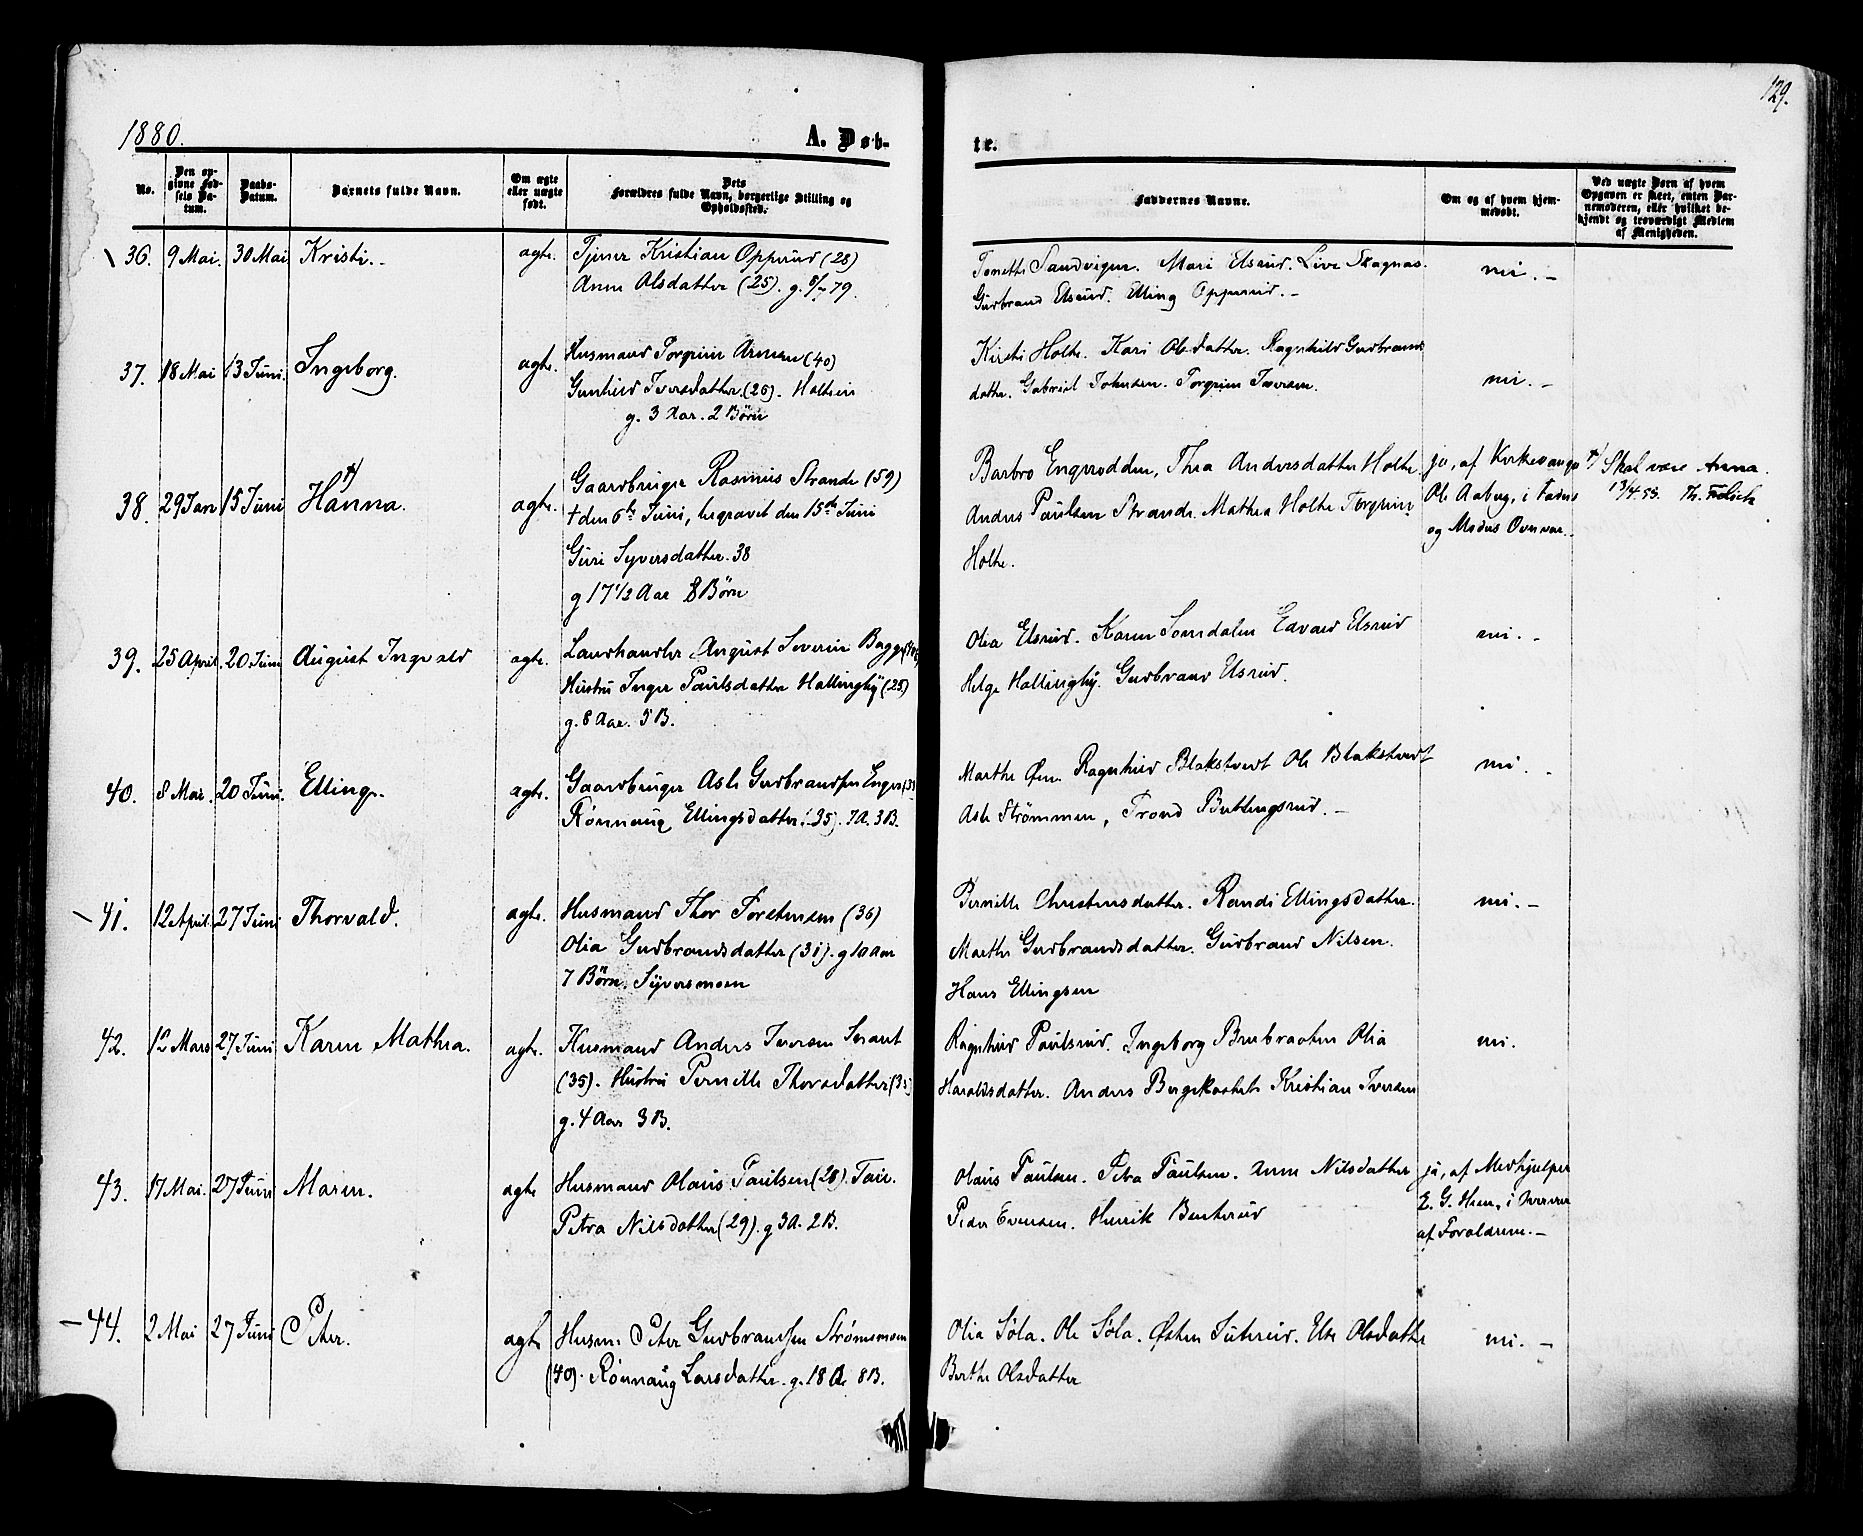 129.
1880.
A. Døb-
te.
No.
Den op-
givne Fød-
sels Da-
tum.
Daabs-
Datum.
Barnets fulde Navn.
Om ægte
eller uægte
født.
Dets
Forældres fulde Navn, borgerlige Stilling og
Opholdssted.
Faddernes Navne.
Om og af hvem hjem-
medøbt.
Ved uægte Børn af hvem
Opgaven er skeet, enten Bar-
nemoderen, eller hvilket be-
kjendt og troværdigt Medlem
af Menigheden.
36. 9 Mai. 30 Mai Kristi.- ægte. Tjener Kristian Opperud (28)
Anne Olsdatter (25). g. 79.
Sandvigen. Mari Elsrud. Live Skagnas.
Gudbrand Elsrud. Elling Opperud.-
nei.-
37. 18 Mai 13 Juni. Ingeborg. ægte. Husmand Torgrim (40)
Gunhild Iversdatter (26).
g. 3 Aar. 2 Børn
Kirsti Holte. Kari Olsdatter. Ragnhild Gudbrands
datter. Gabriel Johnsen. Torgrim Iversen.
nei.-
38. 29 Jan 15 Juni Hanna. ægte. Gaardbruger Rasmus Strande (59)
† den 6te Juni, begravet den 15de Juni
Guri Syversdatter. 38
g 17 1/2 Aar 8 Børn
Barbro Engerodden, Thea Andersdatter Holte
Anders Paulsen Strande. Mathea Holte Torgrim
Holte.
ja, af Kirkesanger
Ole Aaberg, i Faders
og Moders Overvær..
Skal være Anna.
13/4.53.
39. 25 April. 20 Juni August Ingvald ægte. Landhandler August Severin Bagge
Hustru Inger Paulsdatter Hallingby (25)
g. 8 Aar. 5 B.
Olia Elsrud. Karen Somdalen Edvard Elsrud
Helge Hallingby. Gudbrand Elsrud.
nei.-
40. 8 Mar. 20 Juni. Elling. ægte. Gaardbruger Asle Gudbrandsen
Rønnaug Ellingsdatter (35). 7 A. 3 B.
Marthe Øen. Ragnhild Blakstvedt Ole Blakstvedt
Asle Strømmen, Trond Buttingsrud.-
nei.
41. 12 April. 27 Juni Thorvald. ægte. Husmand Thor Torstensen (36)
Olia Gudbrandsdatter (31). g 10 Aar
7 Børn. Syversmoen
Pernille Christensdatter. Randi Ellingsdatter.
Marthe Gudbrandsdatter. Gudbrand Nilsen.
Hans Ellingsen
nei.-
42. 12 Mars 27 Juni Karen Mathea. ægte. Husmand Anders Iversen
(35). Hustru Pernille Thorsdatter (35)
g. 4 Aar 3 B.
Ragnhild Paulsrud. Ingeborg Olia
Haraldsdatter. Anders Kristian Iversen
nei.
43. 17 Mai. 27 Juni Maren. ægte Husmand Olaus Paulsen (28).
Petra Nilsdatter (29). g 3 A. 2 B.
Olaus Paulsen. Petra Paulsen. Anne Nilsdatter
Peder Evensen. Henrik Benterud
ja, af Medhjelper
E. G. Hsen, i Nærvær
af Forældrene.-
44. 2 Mai 27 Juni Peter. ægte Husm. Peter Gudbrandsen Strømsmoen
(40). Rønnaug Larsdatter. g. 18 A. 8 B.
Olia Søla. Ole Søla. Østen Else Olsdatter
Berthe Olsdatter
nei.-